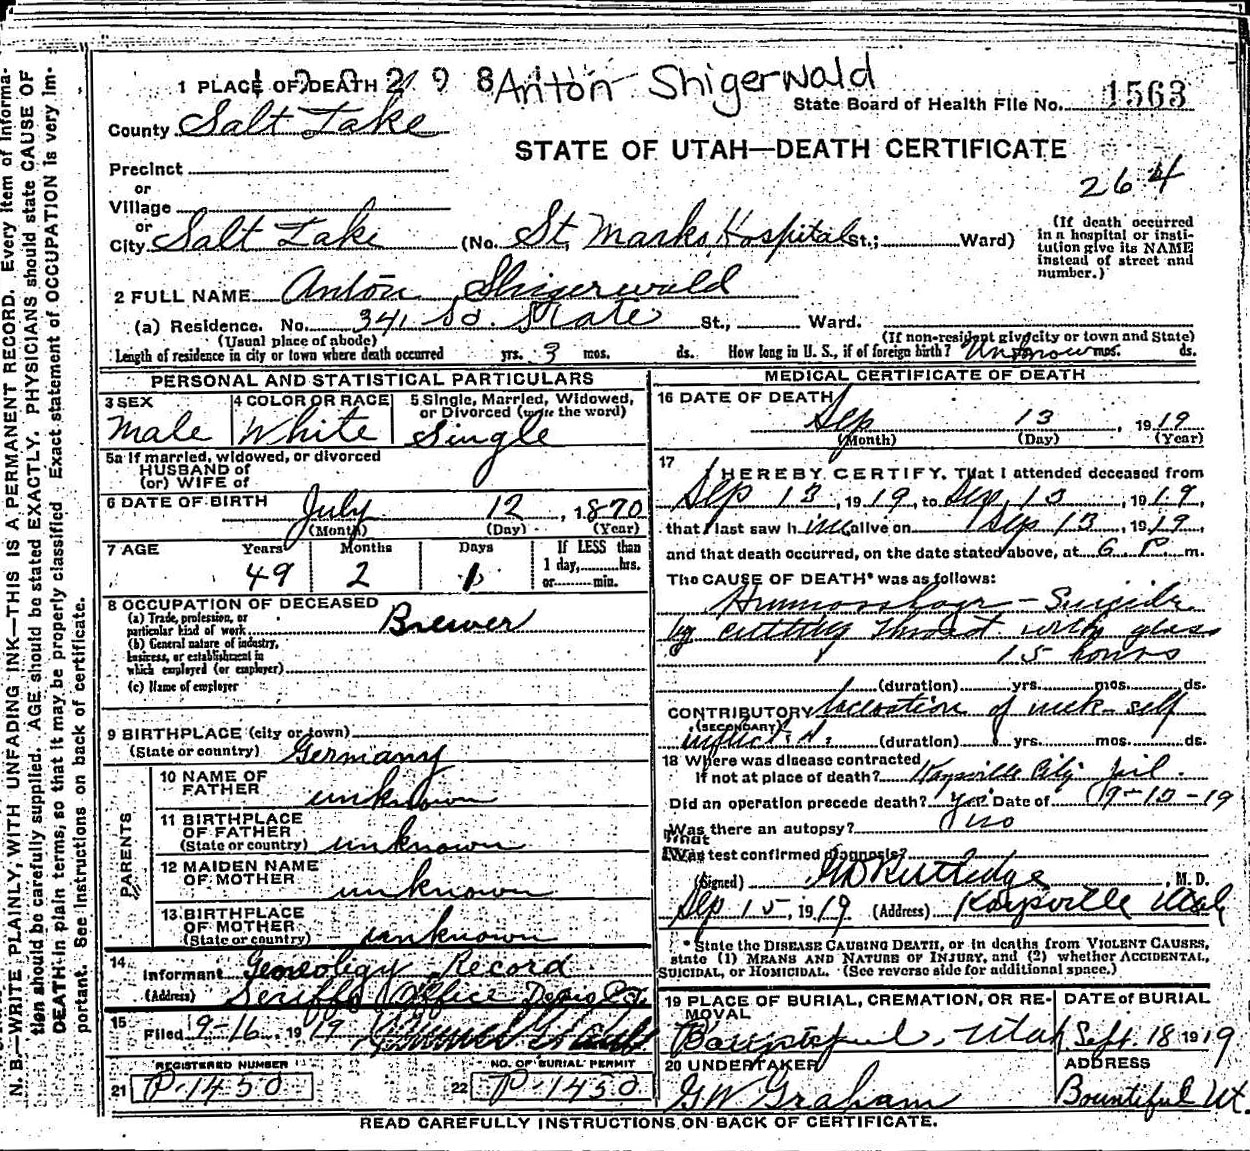 1 PLACE OF DEATH 298 Anton Shigerwald
State Board of Health File No. 1563
County Salt Lake
STATE OF UTAH—DEATH CERTIFICATE
264
Precinct
or
Village
or
City Salt Lake (No. St. Marks Hospital St.; Ward)
(If death occurred
in a hospital or insti-
tution give its NAME
instead of street and
number.)
2 FULL NAME Anton Shigerwald
(a) Residence. No. 341 So. State St., Ward.
(Usual place of abode) (If non-resident give city or town and State)
Length of residence in city or town where death occurred yrs. 3 mos. ds. How long in U. S., if of foreign birth? Unknow mos. ds.
PERSONAL AND STATISTICAL PARTICULARS
3 SEX 4 COLOR OR RACE 5 Single, Married, Widowed,
or Divorced (write the word)
Male White Single
5a If married, widowed, or divorced
HUSBAND of
(or) WIFE of
6 DATE OF BIRTH July 12, 1870
(Month) (Day) (Year)
7 AGE Years Months Days If LESS than
1 day, hrs.
or min.
49 2 1
8 OCCUPATION OF DECEASED
(a) Trade, profession, or
particular kind of work Brewer
(b) General nature of industry,
business, or establishment in
which employed (or employer)
(c) Name of employer
9 BIRTHPLACE (city or town)
(State or country) Germany
PARENTS
10 NAME OF
FATHER unknown
11 BIRTHPLACE
OF FATHER
(State or country) unknown
12 MAIDEN NAME
OF MOTHER unknown
13 BIRTHPLACE
OF MOTHER
(State or country) unknown
14
Informant Geneoligy Record
(Address) Seriffs Office Davis Co.
15 Filed 9-16, 1919
REGISTERED NUMBER NO. OF BURIAL PERMIT
21 P-1450 22 P-1450
MEDICAL CERTIFICATE OF DEATH
16 DATE OF DEATH
Sep 13, 1919
(Month) (Day) (Year)
17 I HEREBY CERTIFY, That I attended deceased from
Sep 13, 1919, to Sep. 13, 1919,
that I last saw him alive on Sep 13, 1919,
and that death occurred, on the date stated above, at 6 P. m.
The CAUSE OF DEATH* was as follows:
Hemmorrhage - Suicide
by cutting throat with glass
15 hours
(duration) yrs. mos. ds.
CONTRIBUTORY laceration of neck - self
(SECONDARY)
inflicted. (duration) yrs. mos. ds.
18 Where was disease contracted
if not at place of death? Kaysville City Jail.
Did an operation precede death? yes Date of 9-13-19
Was there an autopsy? no
What
Was test confirmed diagnosis?
(Signed) G D Rutledge, M. D.
Sep 15, 1919 (Address) Kaysville Utah
* State the DISEASE CAUSING DEATH, or in deaths from VIOLENT CAUSES,
state (1) MEANS AND NATURE OF INJURY, and (2) whether ACCIDENTAL,
SUICIDAL, or HOMICIDAL. (See reverse side for additional space.)
19 PLACE OF BURIAL, CREMATION, OR RE-
MOVAL
DATE OF BURIAL
Bountiful, Utah Sept. 18 1919
20 UNDERTAKER ADDRESS
GW Graham Bountiful Ut.
READ CAREFULLY INSTRUCTIONS ON BACK OF CERTIFICATE.
N. B.—WRITE PLAINLY, WITH UNFADING INK—THIS IS A PERMANENT RECORD. Every item of informa-
tion should be carefully supplied. AGE should be stated EXACTLY. PHYSICIANS should state CAUSE OF
DEATH in plain terms, so that it may be properly classified. Exact statement of OCCUPATION is very im-
portant. See instructions on back of certificate.